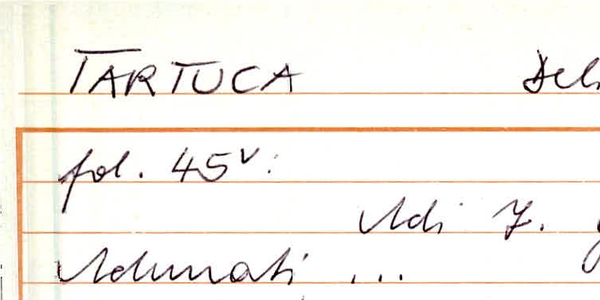 TARTUCA
fol. 45v:
Adi 7.
Adunati ...